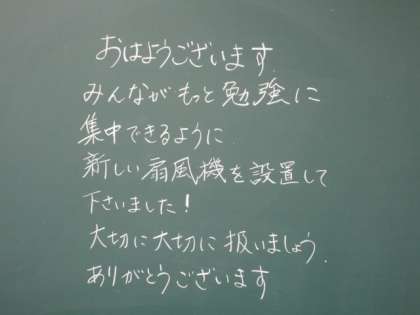 おはようございます
みんなが もっと 勉強に
集中できるように
新しい扇風機を設置して
下さいました!
大切に大切に 扱いましょう.
ありがとうございます